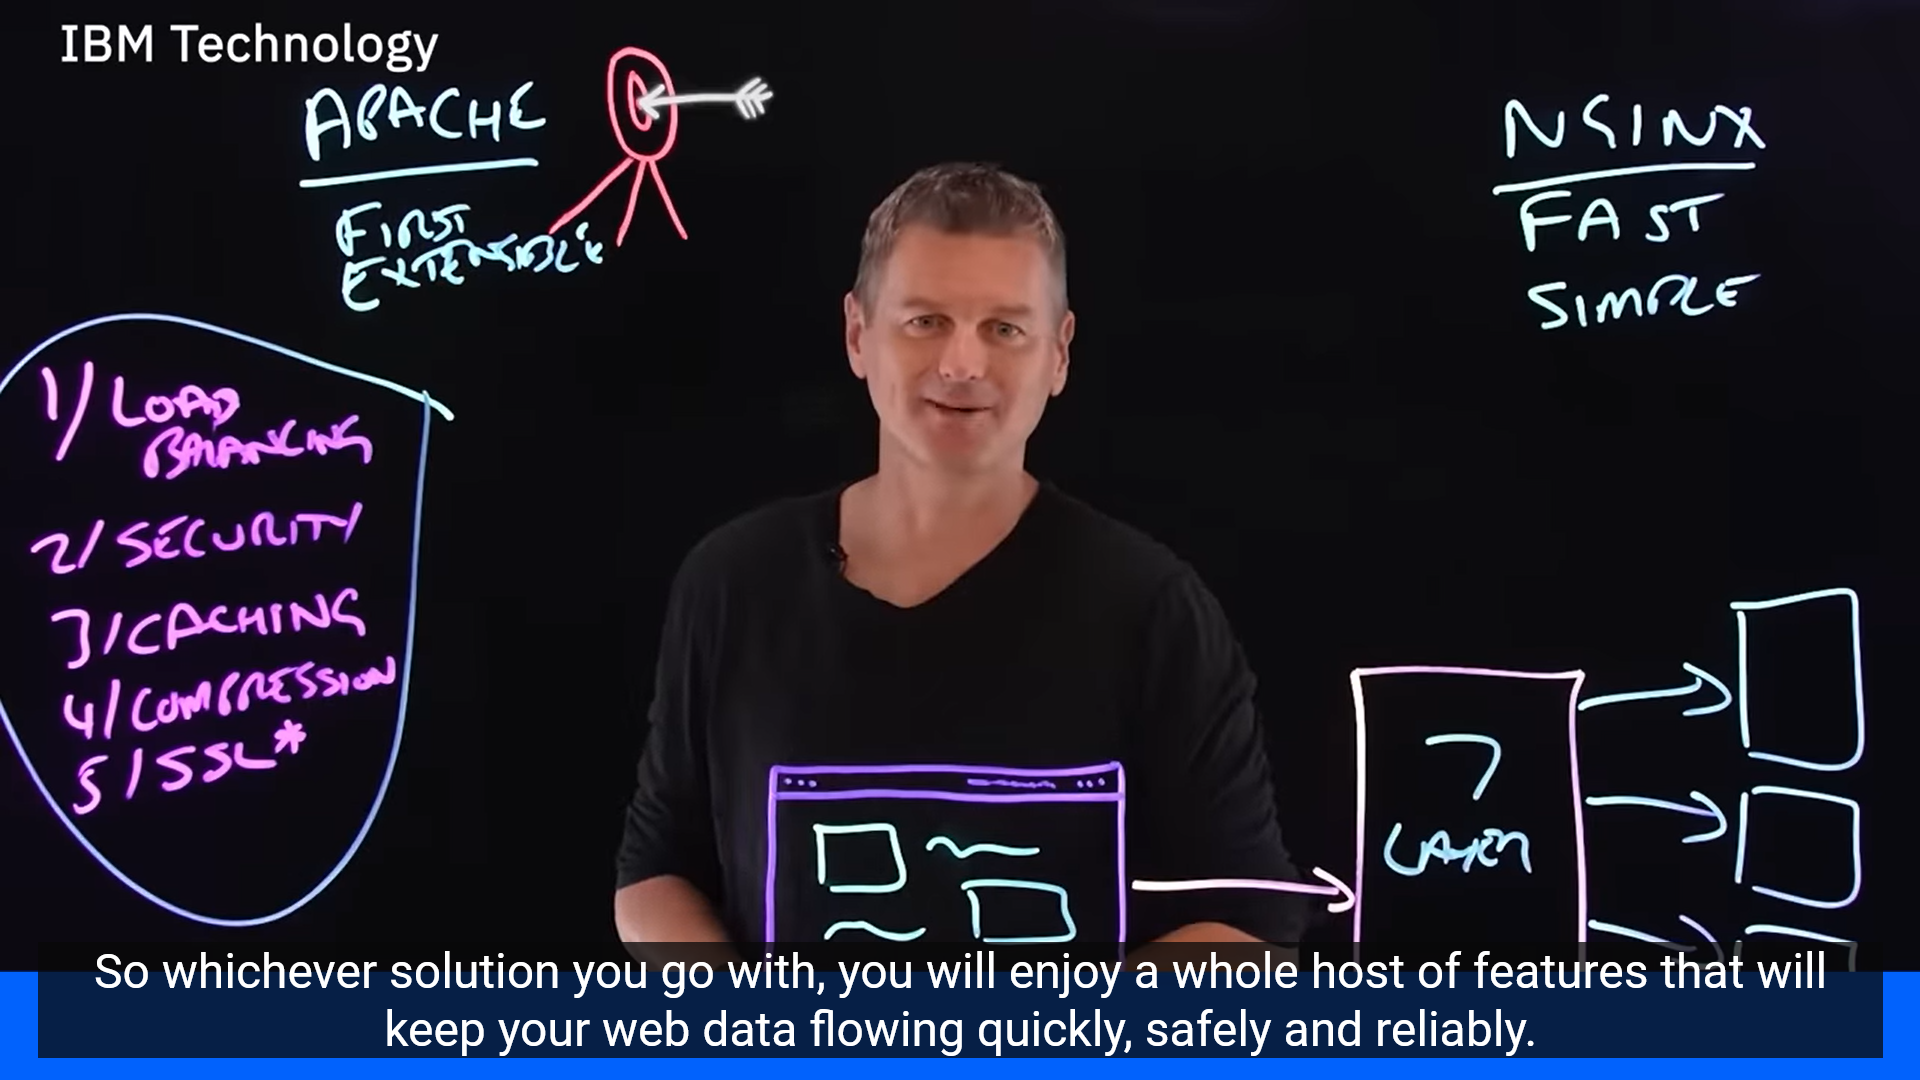 IBM Technology
APACHE
FIRST
EXTENSIBLE
NGINX
FAST
SIMPLE
1/ LOAD
BALANCING
2/ SECURITY
3/ CACHING
4/ COMPRESSION
5/ SSL*
7
LAYER
So whichever solution you go with, you will enjoy a whole host of features that will
keep your web data flowing quickly, safely and reliably.